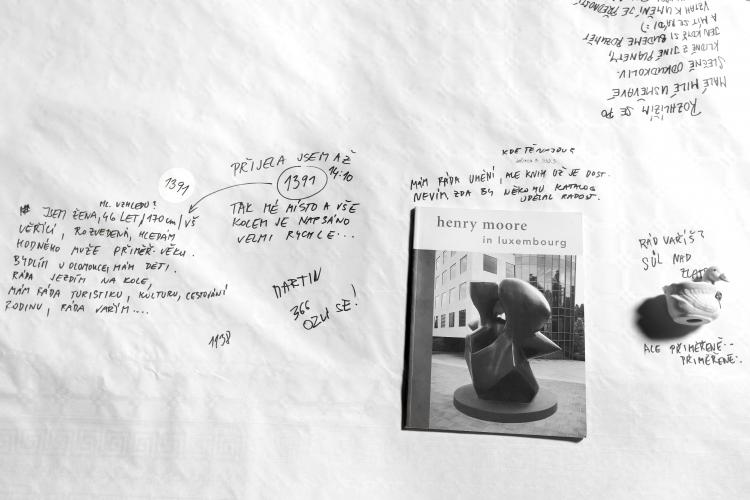 ROZHLÍŽÍM SE PO
MALÉ MILÉ USMĚVAVÉ
SLEČNĚ ODKUDKOLIV.
KLIDNĚ Z JINÉ PLANETY,
JEN KDYŽ SI BUDEME ROZUMĚT
A MÍT SE RÁDI :)
VZTAH K UMĚNÍ JE PŘEDNOSTÍ
1391
PŘIJELA JSEM AŽ
14:10
1391
TAK MÉ MÍSTO A VŠE
KOLEM JE NAPSÁNO
VELMI RYCHLE...
ML. VZHLEDU?
JSEM ŽENA, 46 LET / 170cm / VŠ
VĚŘÍCÍ, ROZVEDENÁ, HLEDÁM
HODNÉHO MUŽE PŘIMĚŘ. VĚKU.
BYDLÍM V OLOMOUCI, MÁM DĚTI.
RÁDA JEZDÍM NA KOLE,
MÁM RÁDA TURISTIKU, KULTURU, CESTOVÁNÍ
RODINU, RÁDA VAŘÍM....
1198
MARTIN
366
OZVI SE!
MÁM RÁDA UMĚNÍ, ALE KNIH UŽ JE DOST.
NEVÍM ZDA BY NĚKOMU KATALOG
UDĚLAL RADOST.
henry moore
in luxembourg
RÁD VAŘÍŠ?
SŮL NAD
ZLATO
ALE PŘIMĚŘENĚ--
PŘIMĚŘENĚ.